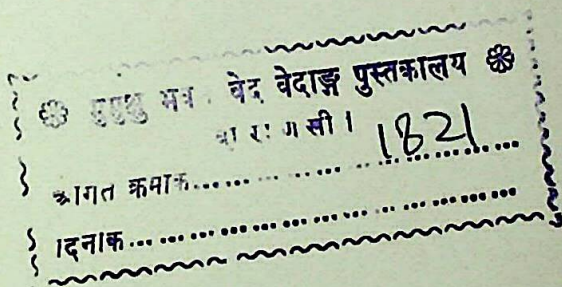 ❀ मुमुक्षु भवन वेद वेदाङ्ग पुस्तकालय ❀
वाराणसी ।
आगत क्रमाक........................1821
दिनाक........................